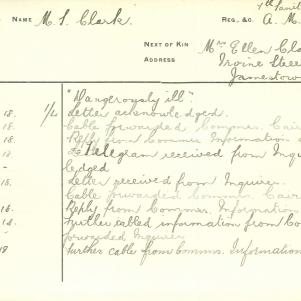 NAME M. S. Clark.
REG., &C. A. M.
NEXT OF KIN Mrs Ellen Cla
ADDRESS Irvine Stree
Jamestow
"Dangerously ill".
18. 1/4 Letter acknowledged.
18. Cable forwarded Commes. Cair
18. Reply from Commes Information
18. Telegram received from Inqu
ledged
Letter received from Inquirer.
Cable forwarded Commes. Cair
18. Reply from Commes. Information
18. Further cabled information from Co
forwarded Inquirer
18 Further cable from Comms. Information